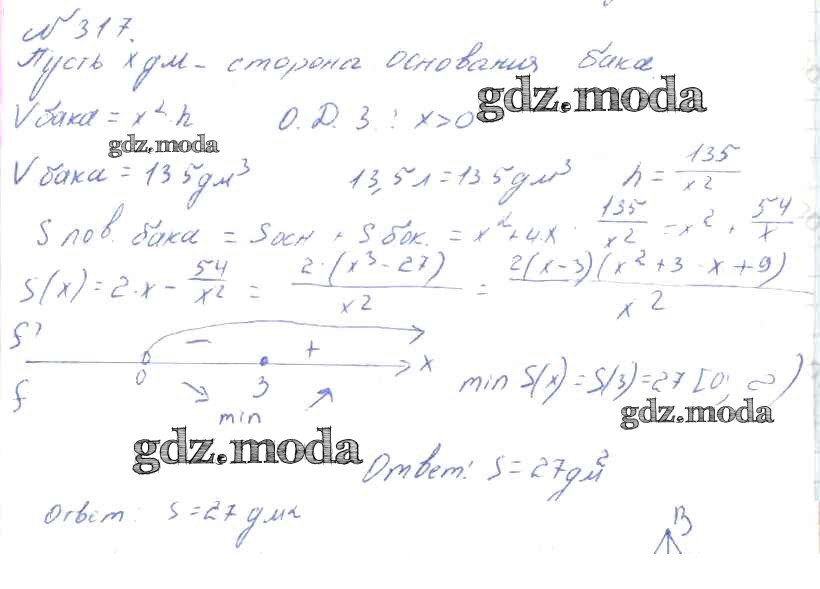 № 317.
Пусть x дм – сторона основания бака
gdz.moda
V бака = x²·h О.Д.З.: x>0
gdz.moda
V бака = 135дм³ 13,5л = 135дм³ h = 135/x²
S пов. бака = Sосн + S бок. = x² + 4x · 135/x² = x² + 54/x
S(x) = 2·x – 54/x² = 2·(x³-27)/x² = 2(x-3)(x²+3·x+9)/x²
f' – + x
0 3
f min
min S(x) = S(3) = 27 [0; ∞)
gdz.moda
gdz.moda
Ответ: S = 27дм²
Ответ: S = 27 дм²
B